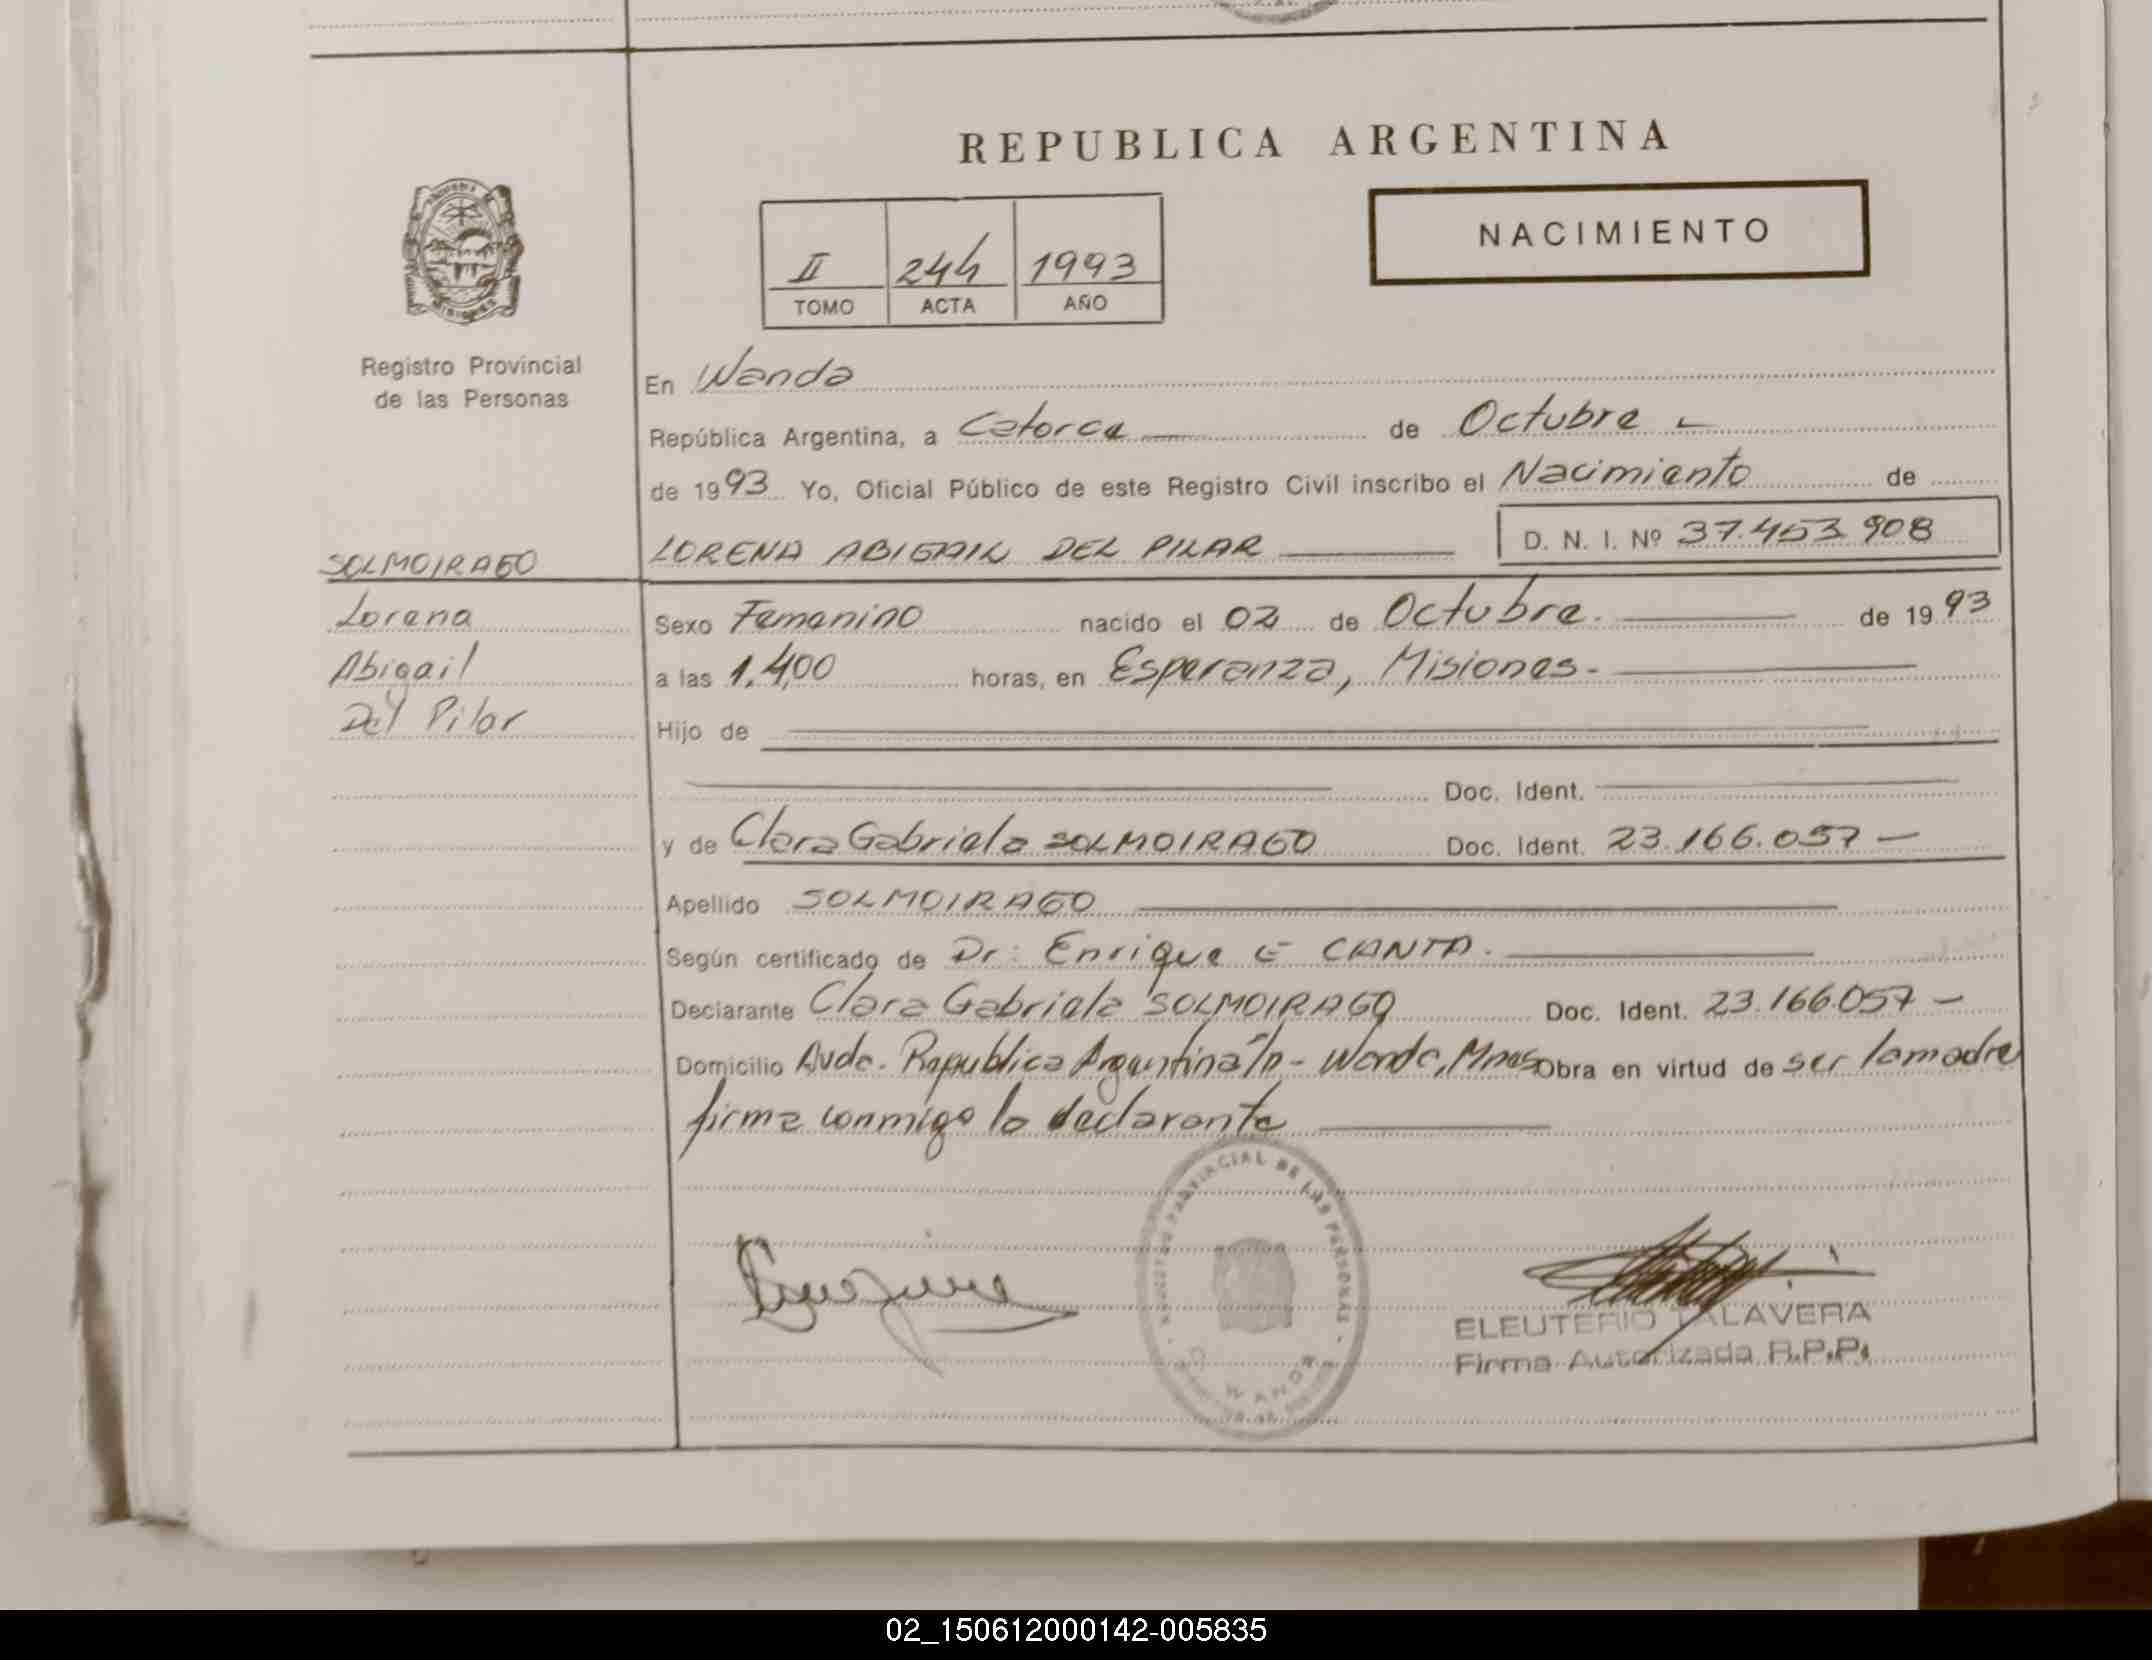 REPUBLICA ARGENTINA
NACIMIENTO
II 244 1993
TOMO ACTA AÑO
Registro Provincial
de las Personas
En Wanda
República Argentina, a Catorce de Octubre
de 1993 Yo, Oficial Público de este Registro Civil inscribo el Nacimiento de
LORENA ABIGAIL DEL PILAR D. N. I. Nº 37.453.908
SOLMOIRAGO
Lorena
Abigail
Del Pilar
Sexo Femenino nacido el 02 de Octubre. de 1993
a las 1,4,00 horas, en Esperanza, Misiones-
Hijo de
Doc. Ident.
y de Clara Gabriela SOLMOIRAGO Doc. Ident. 23.166.057-
Apellido SOLMOIRAGO
Según certificado de Dr: Enrique E CANTA.
Declarante Clara Gabriela SOLMOIRAGO Doc. Ident. 23.166.057-
Domicilio Avda. Republica Argentina s/n - Wanda, Mnes Obra en virtud de ser la madre
firma conmigo la declarante
PROVINCIAL DE LAS PERSONAS
WANDA
ELEUTERIO TALAVERA
Firma Autorizada R.P.P.
02_150612000142-005835